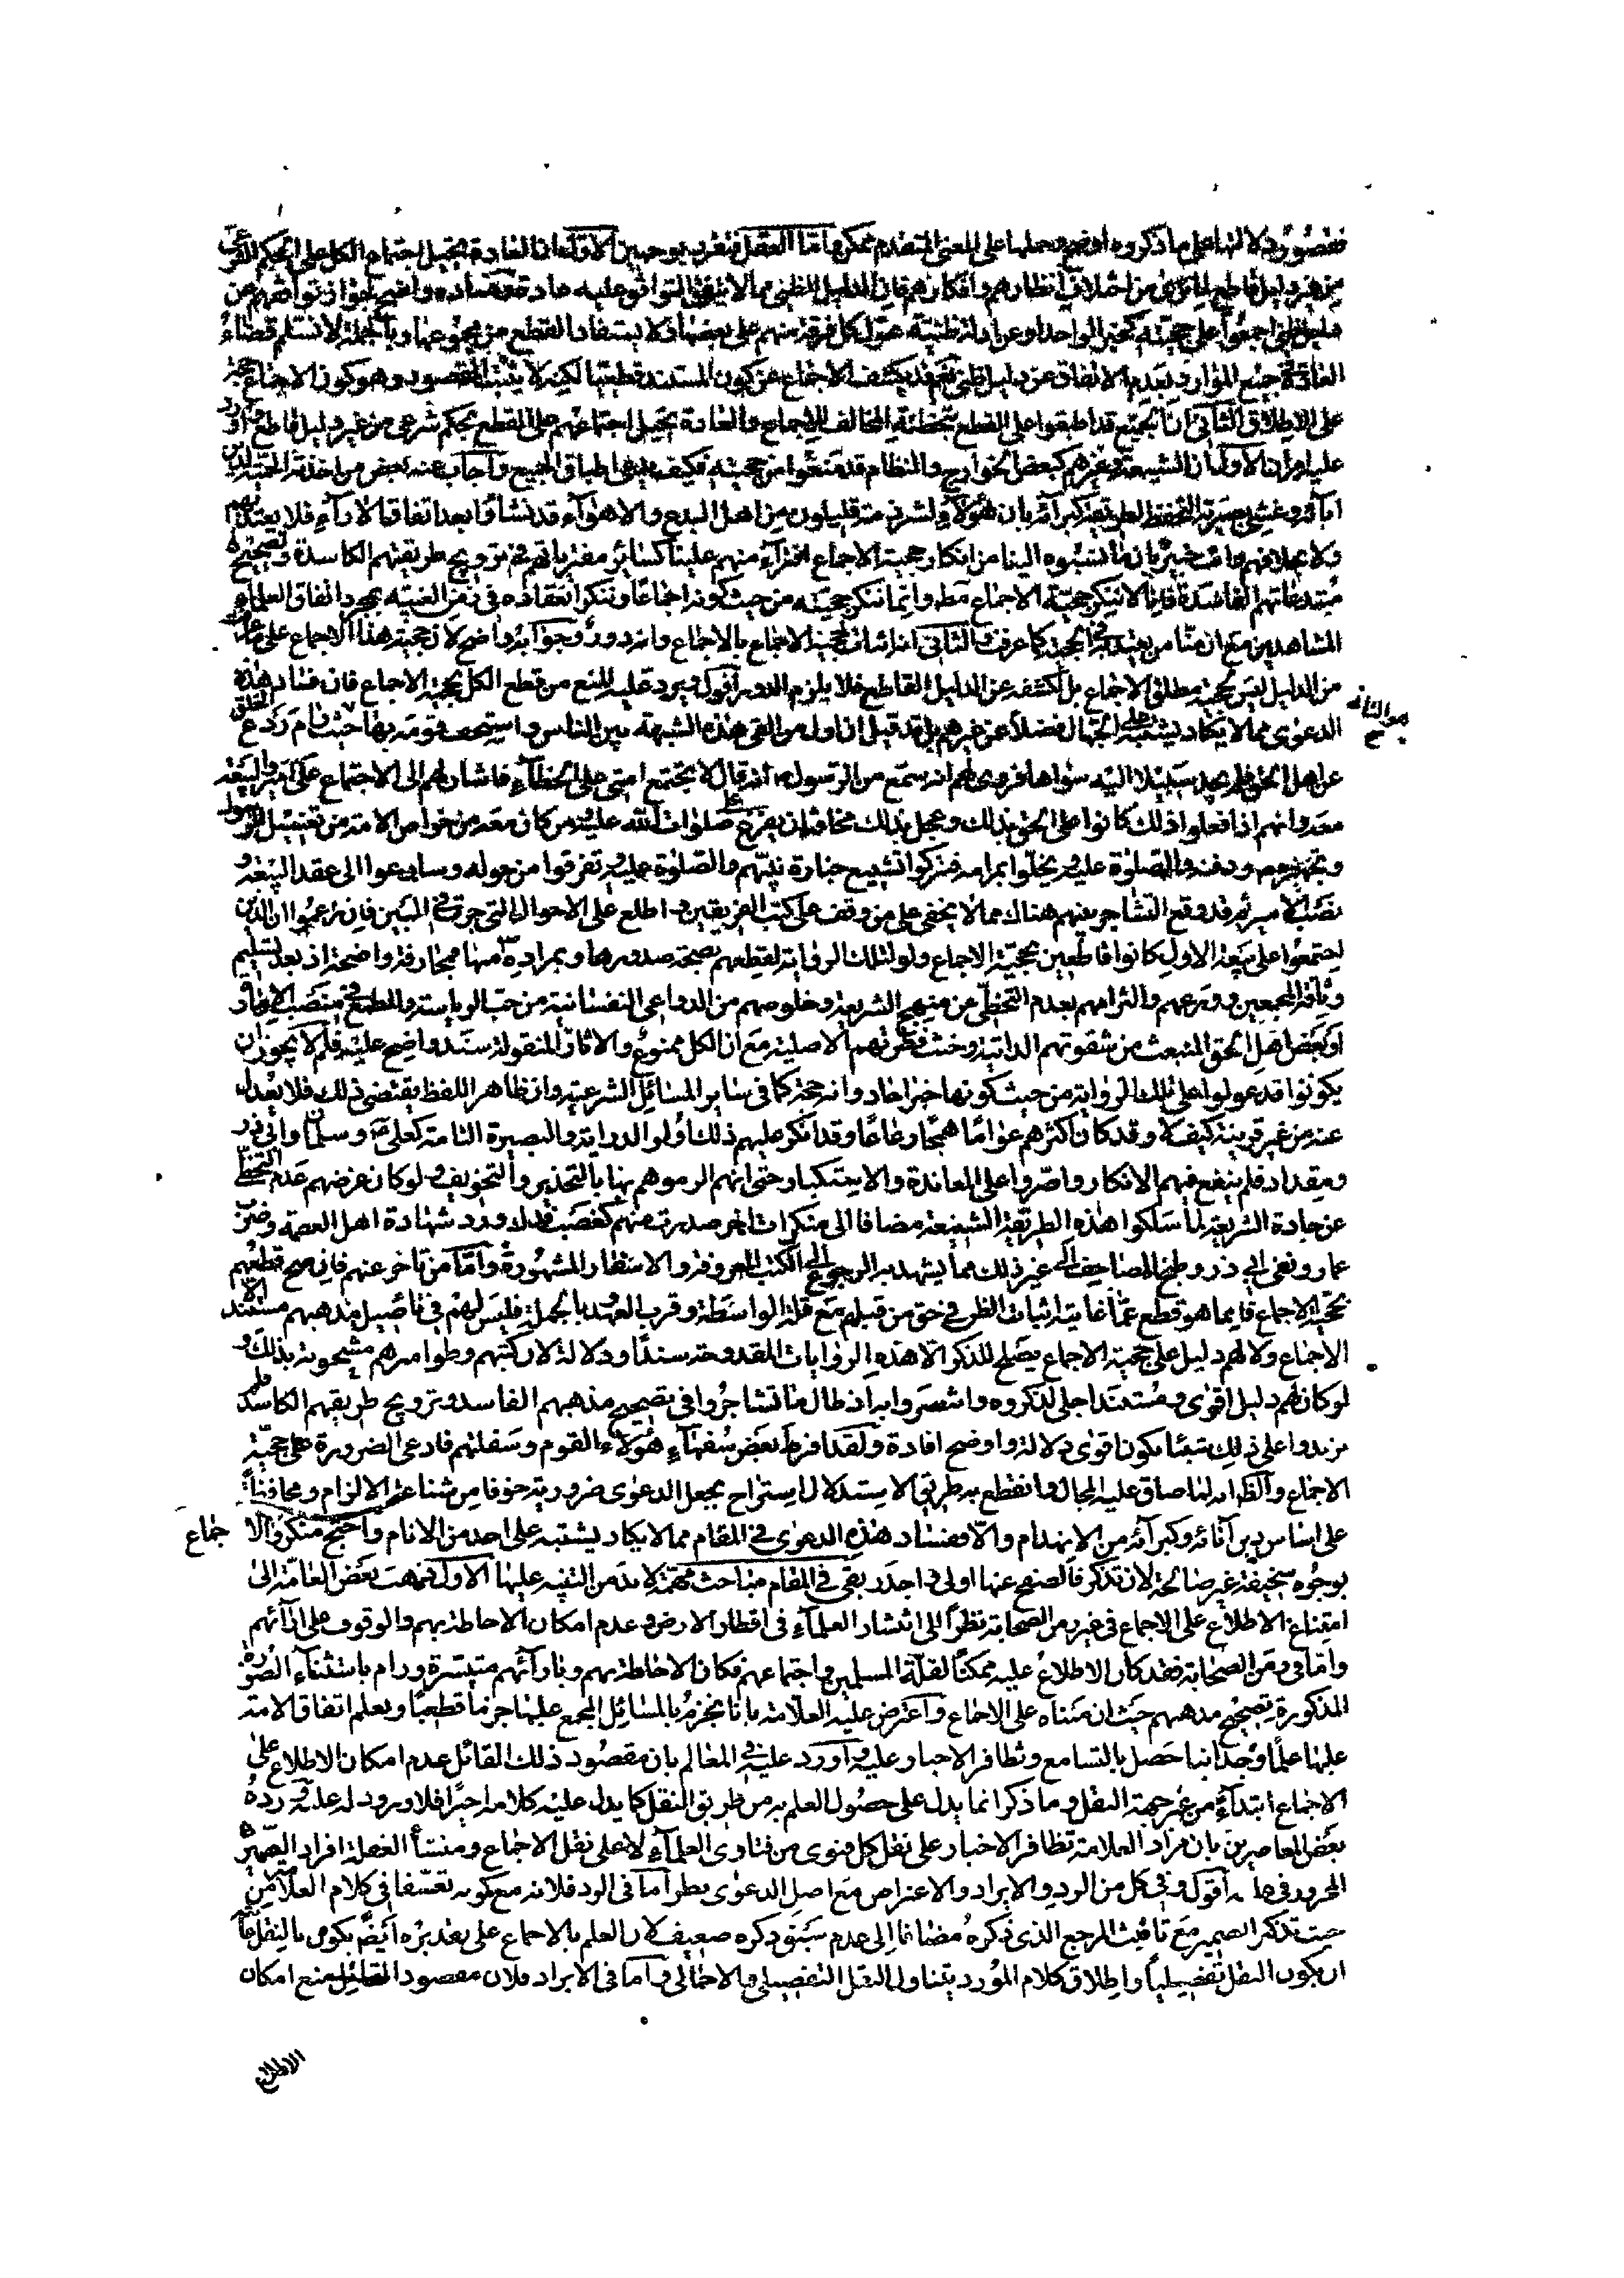 فقصور دلالتها على ما ذكروه اوضح وحملها على المعنى المتقدم ممكن واما العقل فتقريره بوجهين الاول ان العادة تحيل اجتماع الكل على الحكم الفرعى
من غير دليل قاطع من اختلاف انظارهم وافكارهم فان الدليل الظنى مما لا يتفق التوافق عليه عادة وفساده واضح لجواز تواطئهم عن
دليل ظنى اجمعوا على حجيته كخبر الواحد او عن ادلة ظنية عول كل فرقة منهم على بعضها فلا يستفاد القطع من مجموعها وبالجملة لا نسلم قضاء
العادة فى جميع الموارد بعدم الاتفاق عن دليل ظنى نعم قد يكشف الاجماع عن كون المستند قطعيا لكنه لا يثبت المقصود وهو كون الاجماع حجة
على الاطلاق الثانى ان الجميع قد اطبقوا على القطع بتخطئة المخالف للاجماع والعادة تحيل اجتماعهم على القطع بحكم شرعى من غير دليل قاطع واورد
عليه امران الاول ان الشيعة وغيرهم كبعض الخوارج والنظام قد منعوا من حجيته فكيف يدعى اطباق الجميع واجاب عنه بعض من اخذته
بان هؤلاء لشرذمة قليلون من اهل البدع والاهواء قد نشأوا بعد اتفاق الاراء فلا يعتد بهم
ولا بخلافهم وانت خبير بان ما نسبوه الينا من انكار حجية الاجماع افتراء منهم علينا كسائر مفترياتهم فى ترويج طريقتهم الكاسدة وتصحيح
مبتدعاتهم الفاسدة فانا لا ننكر حجية الاجماع مط وانما ننكر حجيته من حيث كونه اجماعا وننكر انعقاده فى زمن الغيبة بمجرد اتفاق العلماء
المشاهدين مع ان منا من يعتد فى الحجية كما عرفت والثانى انه اثبات لحجية الاجماع بالاجماع وانه دور وجوابه واضح لان حجية هذا الاجماع على ما
من الدليل ليس بحجية مطلق الاجماع بل لكشفه عن الدليل القاطع فلا يلزم الدور اقول ويرد عليه المنع من قطع الكل بحجية الاجماع فان فساد هذه
الدعوى مما لا يكاد يشتبه على الجهال فضلا عن غيرهم بل قد قيل ان اول من القى هذه الشبهة بين الناس واستخف قومه بها حيث رام ردع
عن اهل الحق فلم يجد سبيلا اليه سواها فروى لهم انه سمع من الرسول انه قال لا يجتمع امتى على الخطاء فاشار لهم الى الاجتماع على امر والبيعة
معه وانهم اذا فعلوا ذلك كانوا على الحق بذلك وعجل بذلك مخافة ان يفرغ على صلوات الله عليه ومن كان معه من خواص الامة من تغسيل الرسول
وتجهيزهم ودفنه والصلوة عليه يخلوا بمرامه فتركوا تشييع جنازة نبيهم والصلوة عليه وتفرقوا من حوله وسارعوا الى عقد البيعة و
نصب الامير ثم قد وقع التشاجر بينهم هناك مما لا يخفى على من وقف على كتب الفريقين واطلع على الاحوال التى جرت فى البين فان زعموا ان الذين
اجتمعوا على بيعة الاول كانوا قاطعين بحجية الاجماع ولو لتلك الرواية لقطعهم بصحة صدورها وبمراده منها فمجازفة واضحة اذ بعد تسليم
وثاقة المجمعين وورعهم والتزامهم بعدم التخطى عن منهج الشريعة وخلوصهم من الدواعى النفسانية من حب الرياسة والطمع فى منصب الافتاء
او بغض اهل الحق المنبعث من شقوتهم الذاتية وخبث فطرتهم الاصلية مع ان الكل ممنوع والاثار المنقولة سند واضح عليه فلم لا يجوز ان
يكونوا قد عولوا على تلك الرواية من حيث كونها خبر احاد وانه حجة كما فى ساير المسائل الشرعية وان ظاهر اللفظ يقتضى ذلك فلا يعدل
عنه من غير قرينة كيف لا وقد كان اكثرهم عواما همجا رعاعا وقد انكر عليهم ذلك اولو الدراية والبصيرة التامة كعلى ع وسلمان وابى ذر
ومقداد فلم ينفع فيهم الانكار واصروا على المعاندة والاستكبار حتى انهم الزموهم بها بالتحذير والتخويف ولو كان غرضهم عدم التخطى
عن جادة الشريعة لما سلكوا هذه الطريقة الشنيعة مضافا الى منكرات اخر صدرت منهم كغصب فدك ورد شهادة اهل العصمة وضرب
عمار ونفى ابى ذر وطبخ المصاحف الى غير ذلك مما يشهد به الرجوع الى الكتب المعروفة والاسفار المشهورة واما من تاخر عنهم فان صح قطعهم
بحجية الاجماع فانما هو قطع غايته اثبات الظن فى حق من قبلهم مع قلة الواسطة وقرب العهد بالجملة فليس لهم فى تاصيل مذهبهم مستند الا
الاجماع ولا لهم دليل على حجية الاجماع يصلح للذكر الا هذه الروايات المقدوحة سندا ودلالة لان كتبهم وطواميرهم مشحونة بذلك و
لو كان لهم دليل اقوى ومستند اجلى لذكروه واشتهر وايراد طال ما تشاجروا فى تصحيح مذهبهم الفاسد وترويج طريقهم الكاسد فلم
يزيدوا على ذلك شيئا يكون اقوى دلالة واوضح افادة ولقد افرط بعض سفهاء هؤلاء القوم وسفلتهم فادعى الضرورة على حجية
الاجماع والظ انه لما ضاق عليه المجال وانقطع به طريق الاستدلال استراح بجعل الدعوى ضرورية خوفا من شناعة الالزام ومحافظة
على اساس دين آبائه وكبرائه من الانهدام والا ففساد هذه الدعوى فى المقام مما لا يكاد يشتبه على احد من الانام واحتج منكروا الاجماع
بوجوه سخيفة غير صالحة لان تذكر فالصفح عنها اولى واجدر بقى فى المقام مباحث مهمة لا بد من التنبيه عليها الاول ذهب بعض العامة الى
امتناع الاطلاع على الاجماع فى غير زمن الصحابة نظرا الى انتشار العلماء فى اقطار الارض وعدم امكان الاحاطة بهم والوقوف على ارائهم
واما فى زمن الصحابة فقد كان الاطلاع عليه ممكنا لقلة المسلمين واجتماعهم فكان الاحاطة بهم وبارائهم متيسرة ورام باستثناء الصورة
المذكورة تصحيح مذهبهم حيث ان مبناه على الاجماع واعترض عليه العلامة بانا نجزم بالمسائل المجمع عليها جزما قطعيا ونعلم اتفاق الامة
عليها علما وجدانيا حصل بالتسامع وتظافر الاخبار عليه واورد عليه فى المعالم بان مقصود ذلك القائل عدم امكان الاطلاع على
الاجماع ابتداء من غير جهة النقل وما ذكر انما يدل على حصول العلم به من طريق النقل كما يدل عليه كلامه اخيرا فلا ورود له عليه ورده
بعض المعاصرين بان مراد العلامة تظافر الاخبار على نقل كل فتوى من فتاوى العلماء لا على نقل الاجماع ومنشأ الغفلة افراد الضمير
المجرور فى اقول وفى كل من الرد والايراد والاعتراض مع اصل الدعوى نظر اما فى الرد فلانه مع كونه تعسفا فى كلام العلامة من
حيث تذكير الضمير مع تانيث المرجع الذى ذكره مضافا الى عدم سبق ذكره ضعيف لان العلم بالاجماع على تقديره ايضا يكون بالنقل
ان يكون النقل تفصيليا واطلاق كلام المورد يتناول النقل التفصيلى والاجمالى واما فى الايراد فلان مقصود القائل منع امكان
الاطلاع